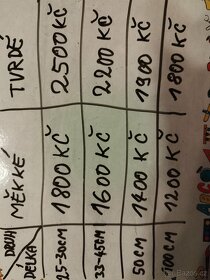 DRUH MĚKKÉ TVRDÉ
DÉLKA
25-30CM 1800 KČ 2500 KČ
33-45CM 1600 KČ 2200 KČ
50CM 1400 KČ KČ
100CM 1200 KČ 1800 KČ